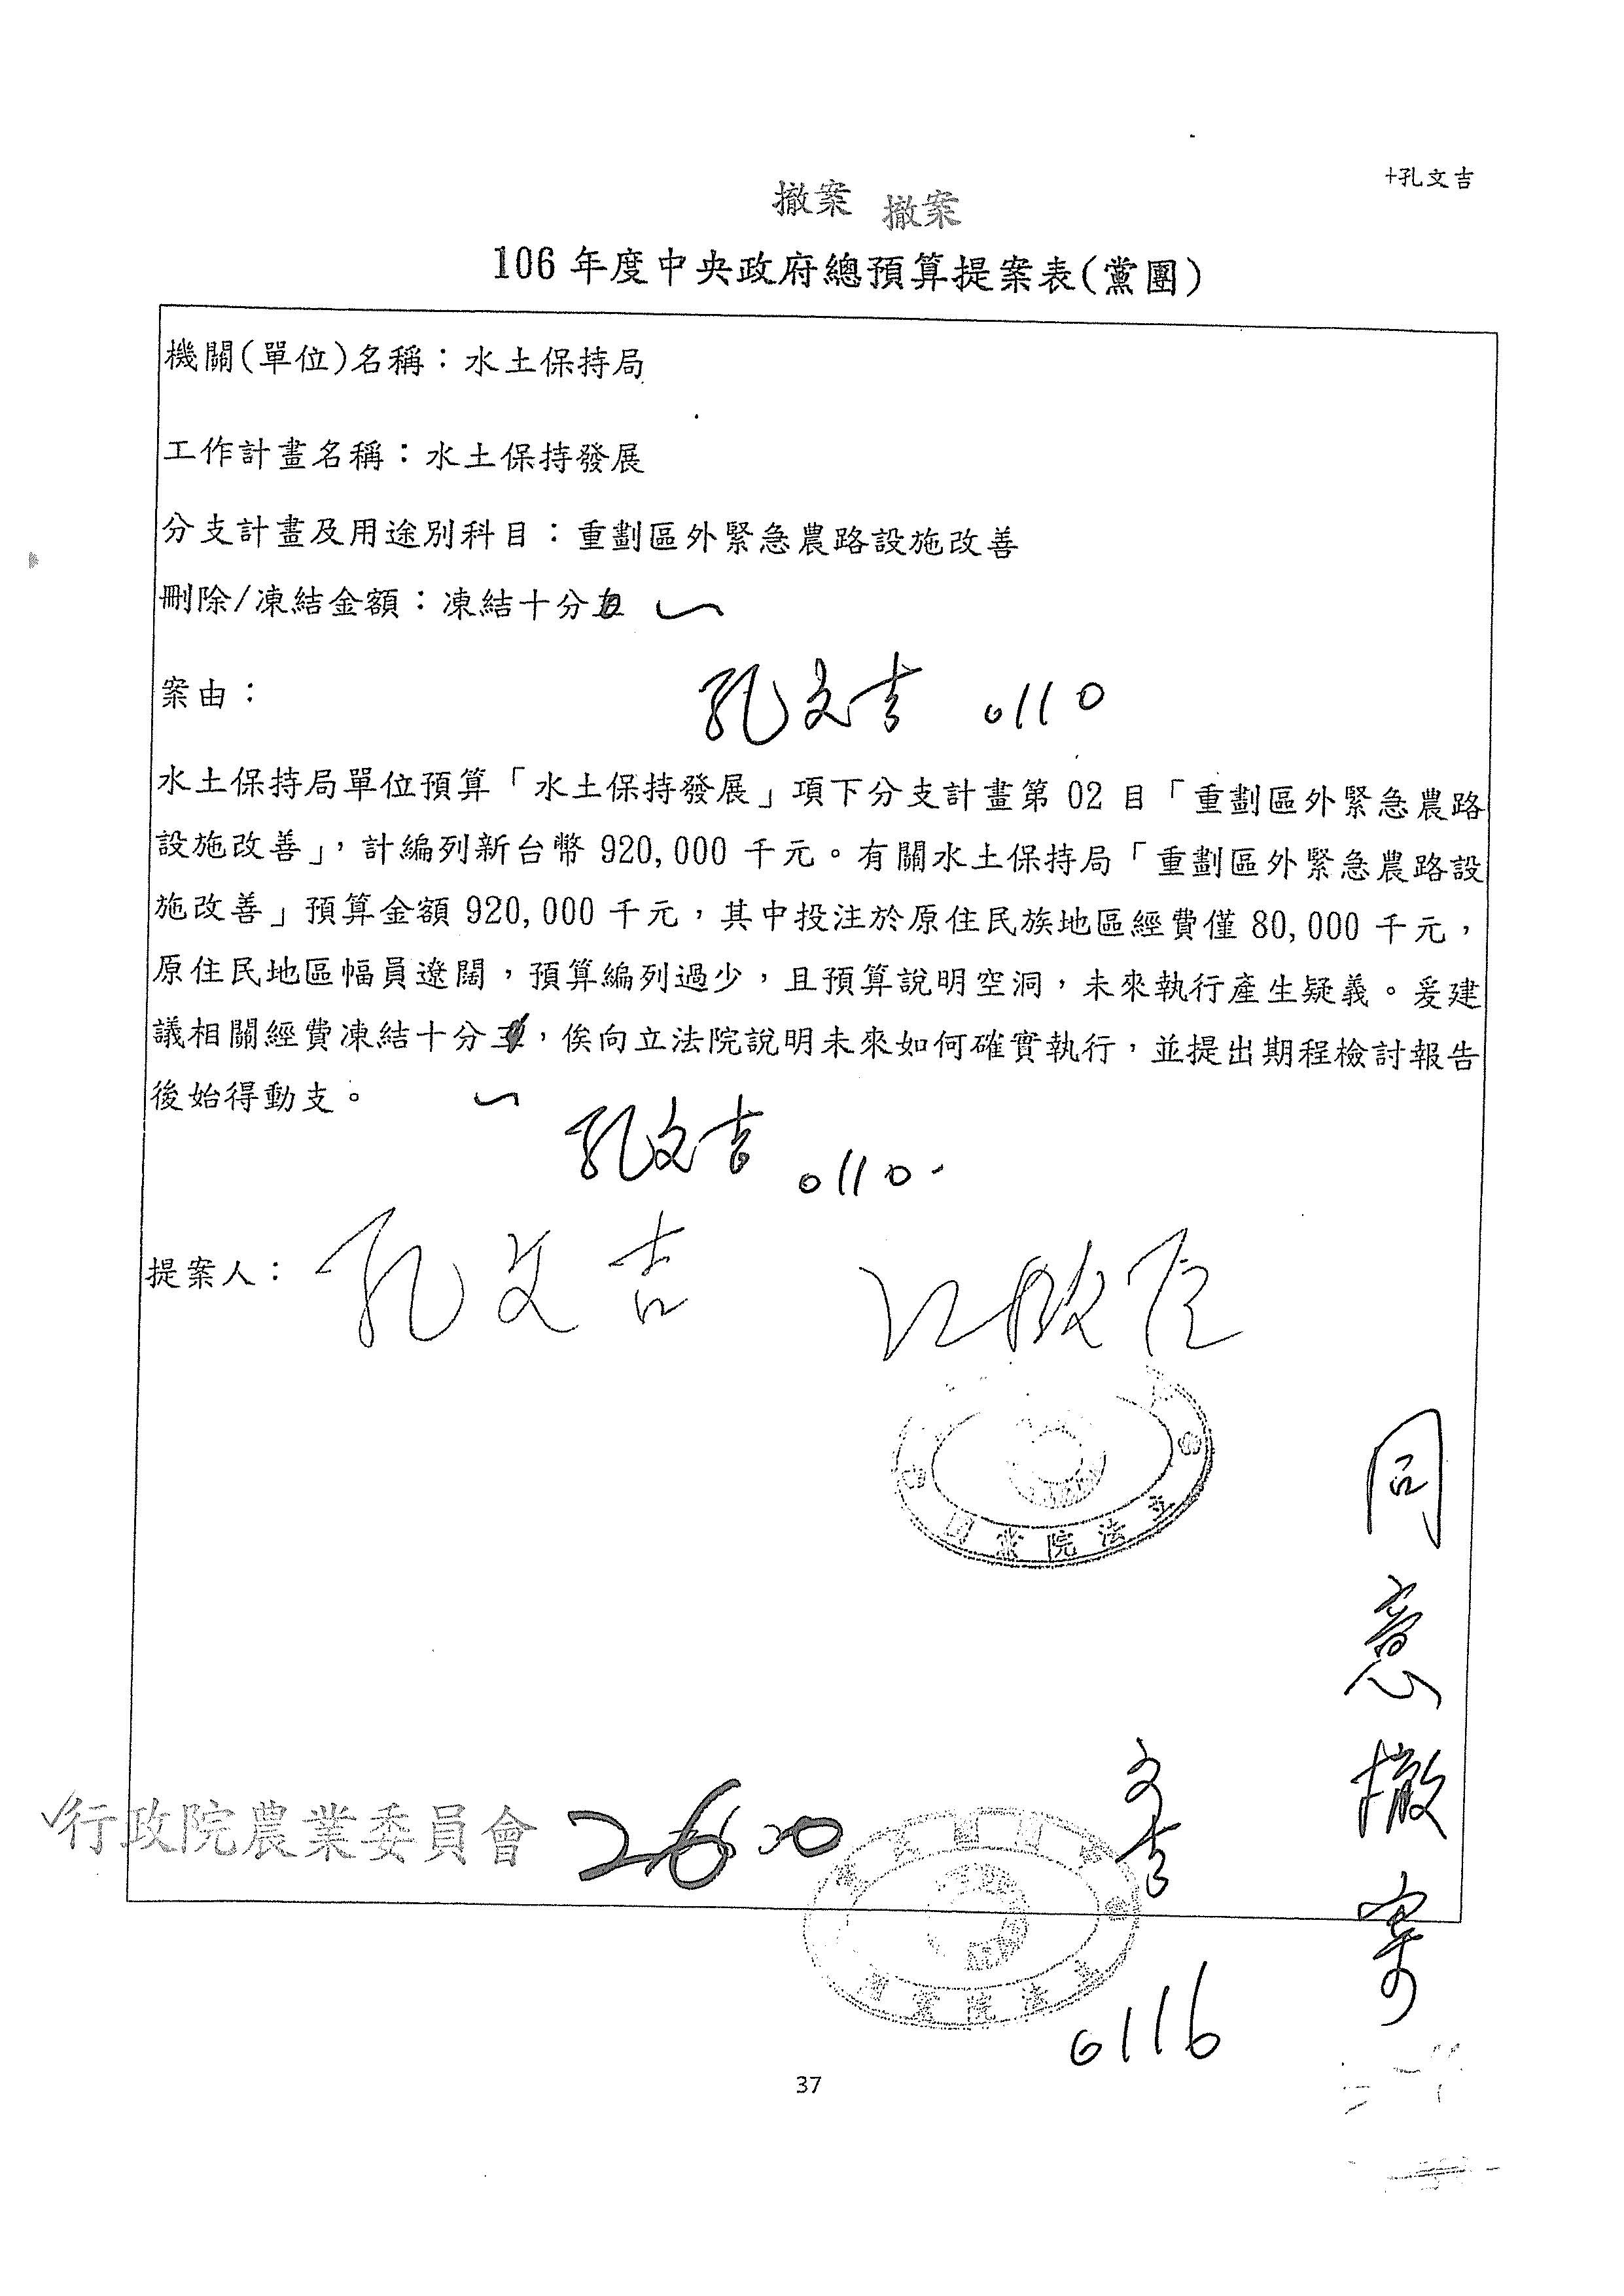 +孔文吉
撤案 撤案
106 年度中央政府總預算提案表(黨團)
機關(單位)名稱：水土保持局
工作計畫名稱：水土保持發展
分支計畫及用途別科目：重劃區外緊急農路設施改善
刪除/凍結金額：凍結十分 一
案由：
孔文吉 0110
水土保持局單位預算「水土保持發展」項下分支計畫第 02 目「重劃區外緊急農路
設施改善」，計編列新台幣 920,000 千元。有關水土保持局「重劃區外緊急農路設
施改善」預算金額 920,000 千元，其中投注於原住民族地區經費僅 80,000 千元，
原住民地區幅員遼闊，預算編列過少，且預算說明空洞，未來執行產生疑義。爰建
議相關經費凍結十分 ，俟向立法院說明未來如何確實執行，並提出期程檢討報告
後始得動支。 一
孔文吉 0110
提案人： 孔文吉 江啟臣
立法院黨團
同意撤案
文吉
行政院農業委員會
立法院黨團
0116
37